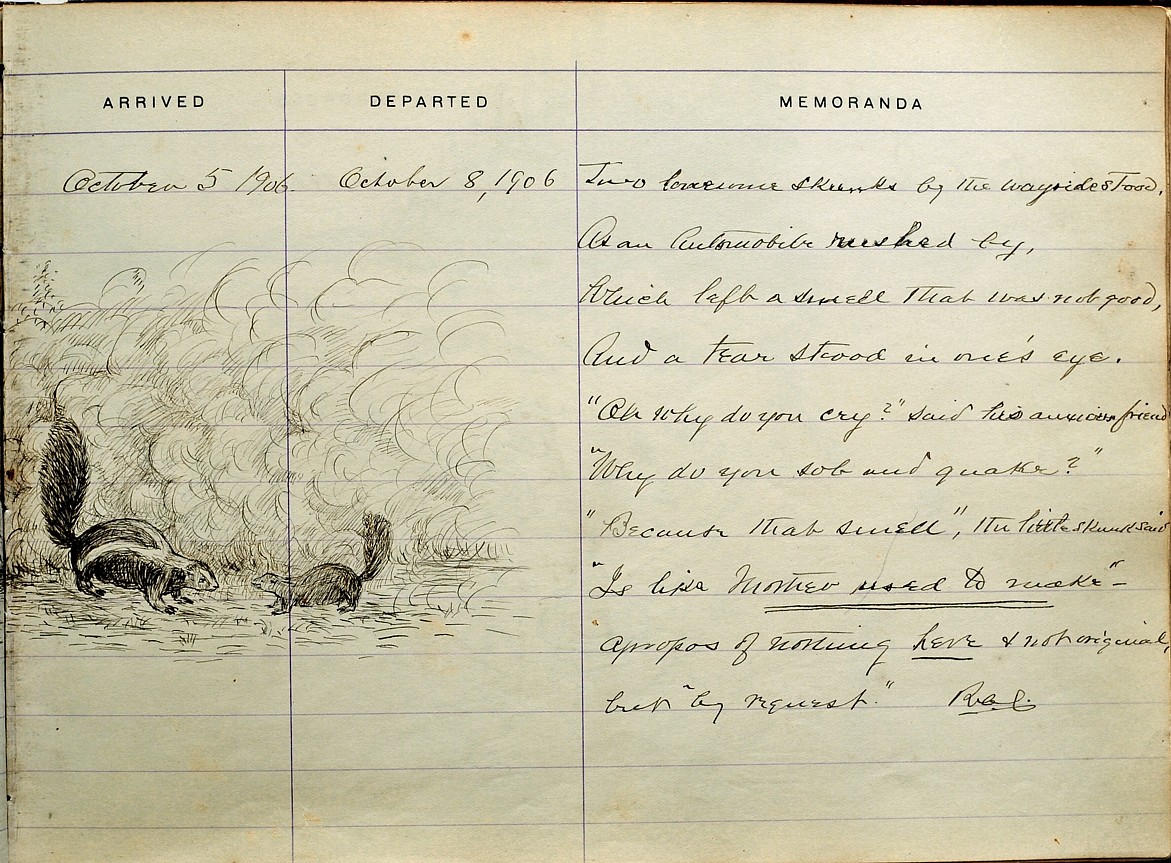 ARRIVED DEPARTED MEMORANDA
October 5 1906. October 8, 1906 Two lonesome skunks by the wayside stood,
As an Automobile rushed by,
Which left a smell that was not good,
And a tear stood in one's eye.
"Oh why do you cry?" said his anxious friend
"Why do you sob and quake?"
"Because that smell", the little skunk said
"Is like Mother used to make" –
apropos of nothing here & not original,
but "by request."